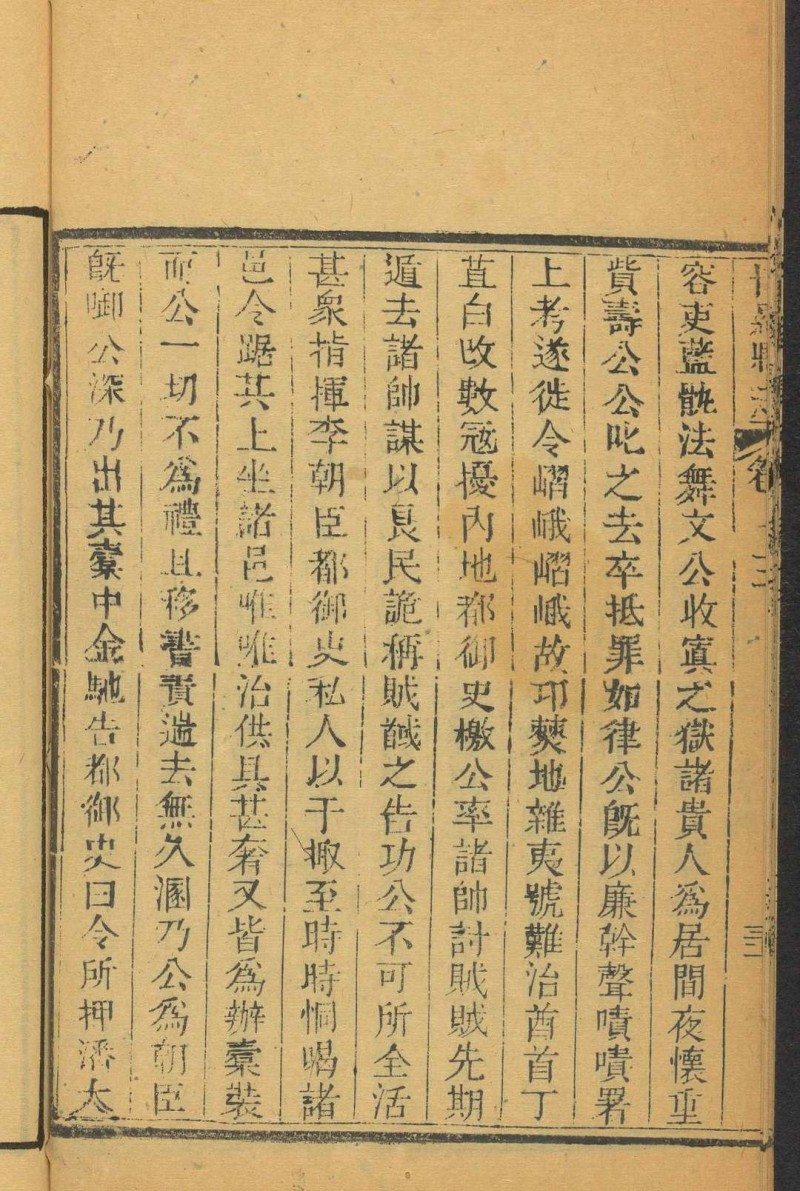 容吏藍骩法舞文公收寘之獄諸貴人爲居間夜懷重
貲壽公公叱之去卒抵罪如律公旣以廉幹聲嘖嘖署
上考遂徙令嶍峨嶍峨故卭僰地雜夷號難治酋首丁
苴白改數冦擾內地都御史檄公率諸帥討賊賊先期
遁去諸帥謀以良民詭稱賊馘之告功公不可所全活
甚衆指揮李朝臣都御史私人以于掫至時時恫喝諸
邑令踞其上坐諸邑唯唯治供具甚奢又皆爲辦橐裝
而公一切不爲禮且移書責逌去無久溷乃公爲朝臣
旣啣公深乃出其橐中金馳告都御史曰令所押潘大